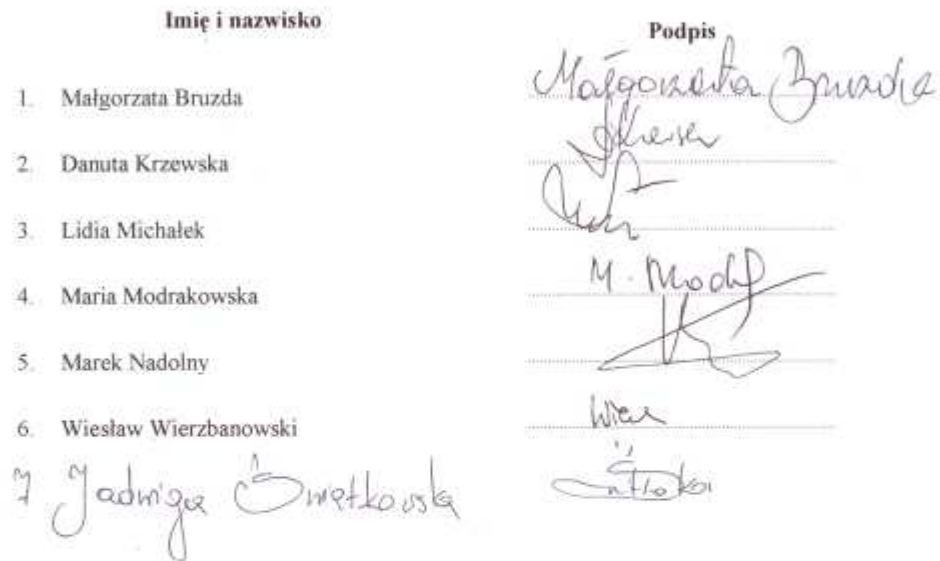 Imię i nazwisko Podpis
1. Małgorzata Bruzda Małgorzata Bruzda
2. Danuta Krzewska
3. Lidia Michałek
4. Maria Modrakowska M. Mod
5. Marek Nadolny
6. Wiesław Wierzbanowski Wier
7 Jadwiga Świętkowska